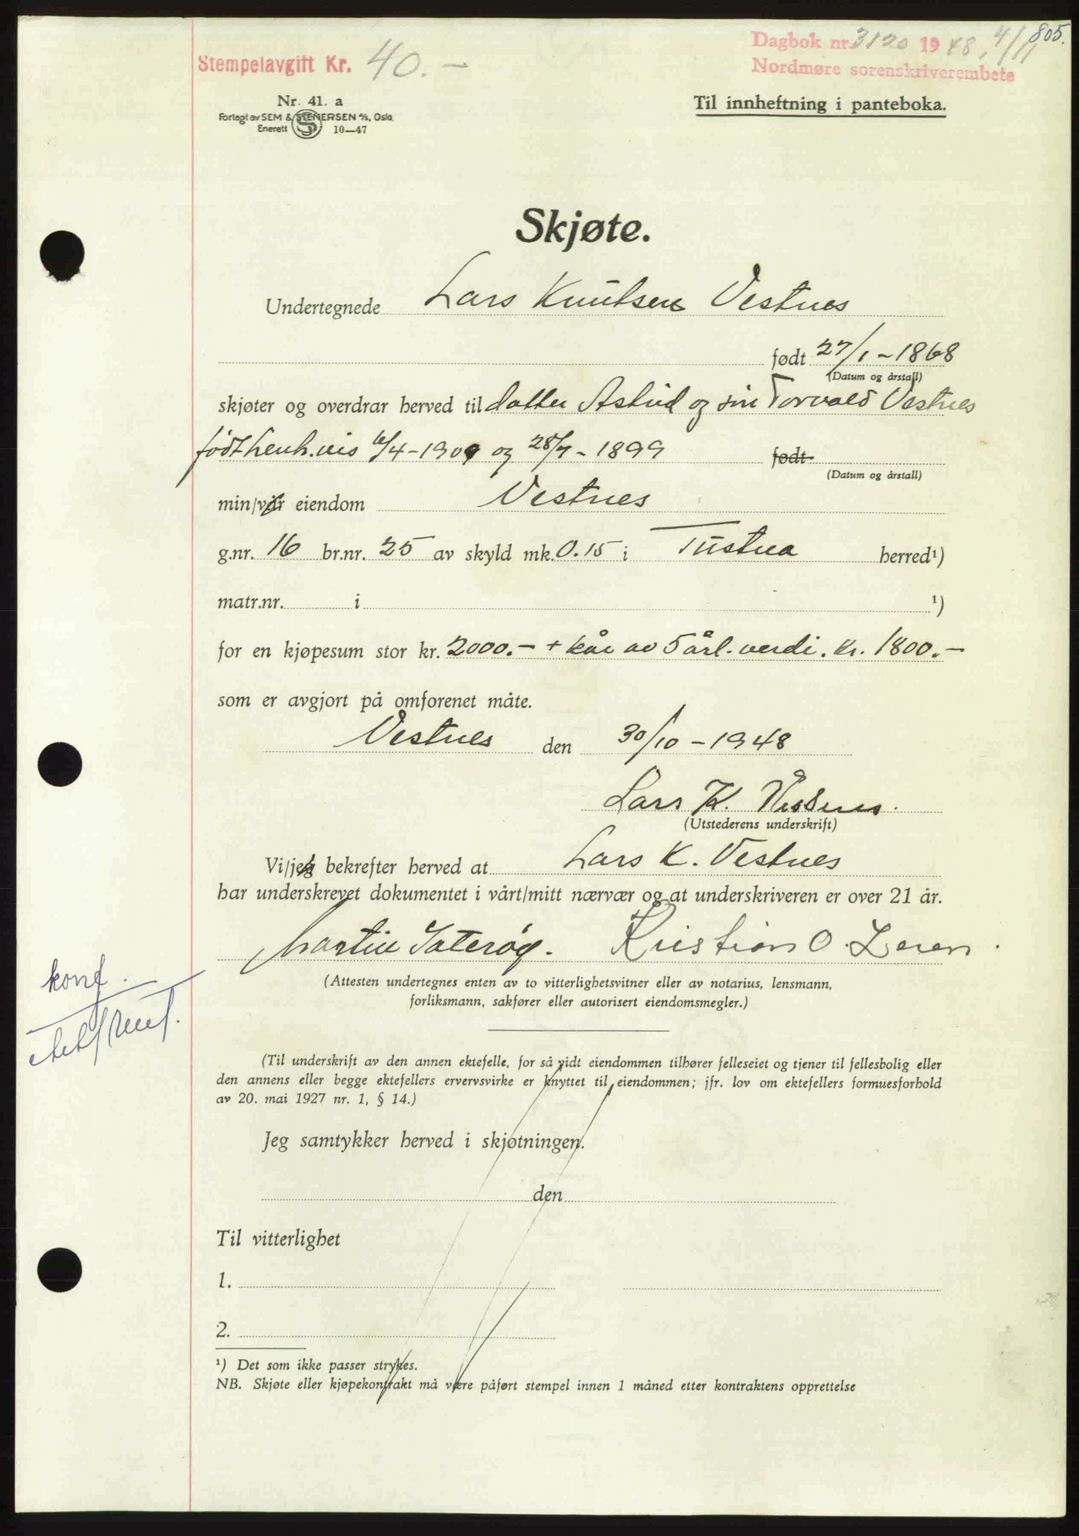 805.
Stempelavgift Kr. 40.-
Dagbok nr. 3120 1948, 4/11
Nordmøre sorenskriverembete
Nr. 41. a
Forlagt av SEM & STENERSEN A/S, Oslo
Enerett S 10-47
Til innheftning i panteboka.
Skjøte.
Undertegnede Lars Knutsen Vestnes
født 27/1-1868
(Datum og årstall)
skjøter og overdrar herved til datter Astrid og sin Torvald Vestnes
født henh.vis 6/4-1909 og 28/7-1899 født
(Datum og årstall)
min/vår eiendom Vestnes
g.nr. 16 br.nr. 25 av skyld mk. 0.15 i Tustna herred¹)
matr.nr. i ¹)
for en kjøpesum stor kr. 2000.- + kår av 5 årl. verdi. kr. 1800.-
som er avgjort på omforenet måte.
Vestnes den 30/10-1948
Lars K. Vestnes.
(Utstederens underskrift)
Vi/jeg bekrefter herved at Lars K. Vestnes
har underskrevet dokumentet i vårt/mitt nærvær og at underskriveren er over 21 år.
Martin Sæterøy. Kristian O. Leren.
(Attesten undertegnes enten av to vitterlighetsvitner eller av notarius, lensmann,
forliksmann, sakfører eller autorisert eiendomsmegler.)
konf.
(Til underskrift av den annen ektefelle, for så vidt eiendommen tilhører felleseiet og tjener til fellesbolig eller
den annens eller begge ektefellers ervervsvirke er knyttet til eiendommen; jfr. lov om ektefellers formuesforhold
av 20. mai 1927 nr. 1, § 14.)
Jeg samtykker herved i skjøtningen.
den
Til vitterlighet
1.
2.
¹) Det som ikke passer strykes.
NB. Skjøte eller kjøpekontrakt må være påført stempel innen 1 måned etter kontraktens opprettelse